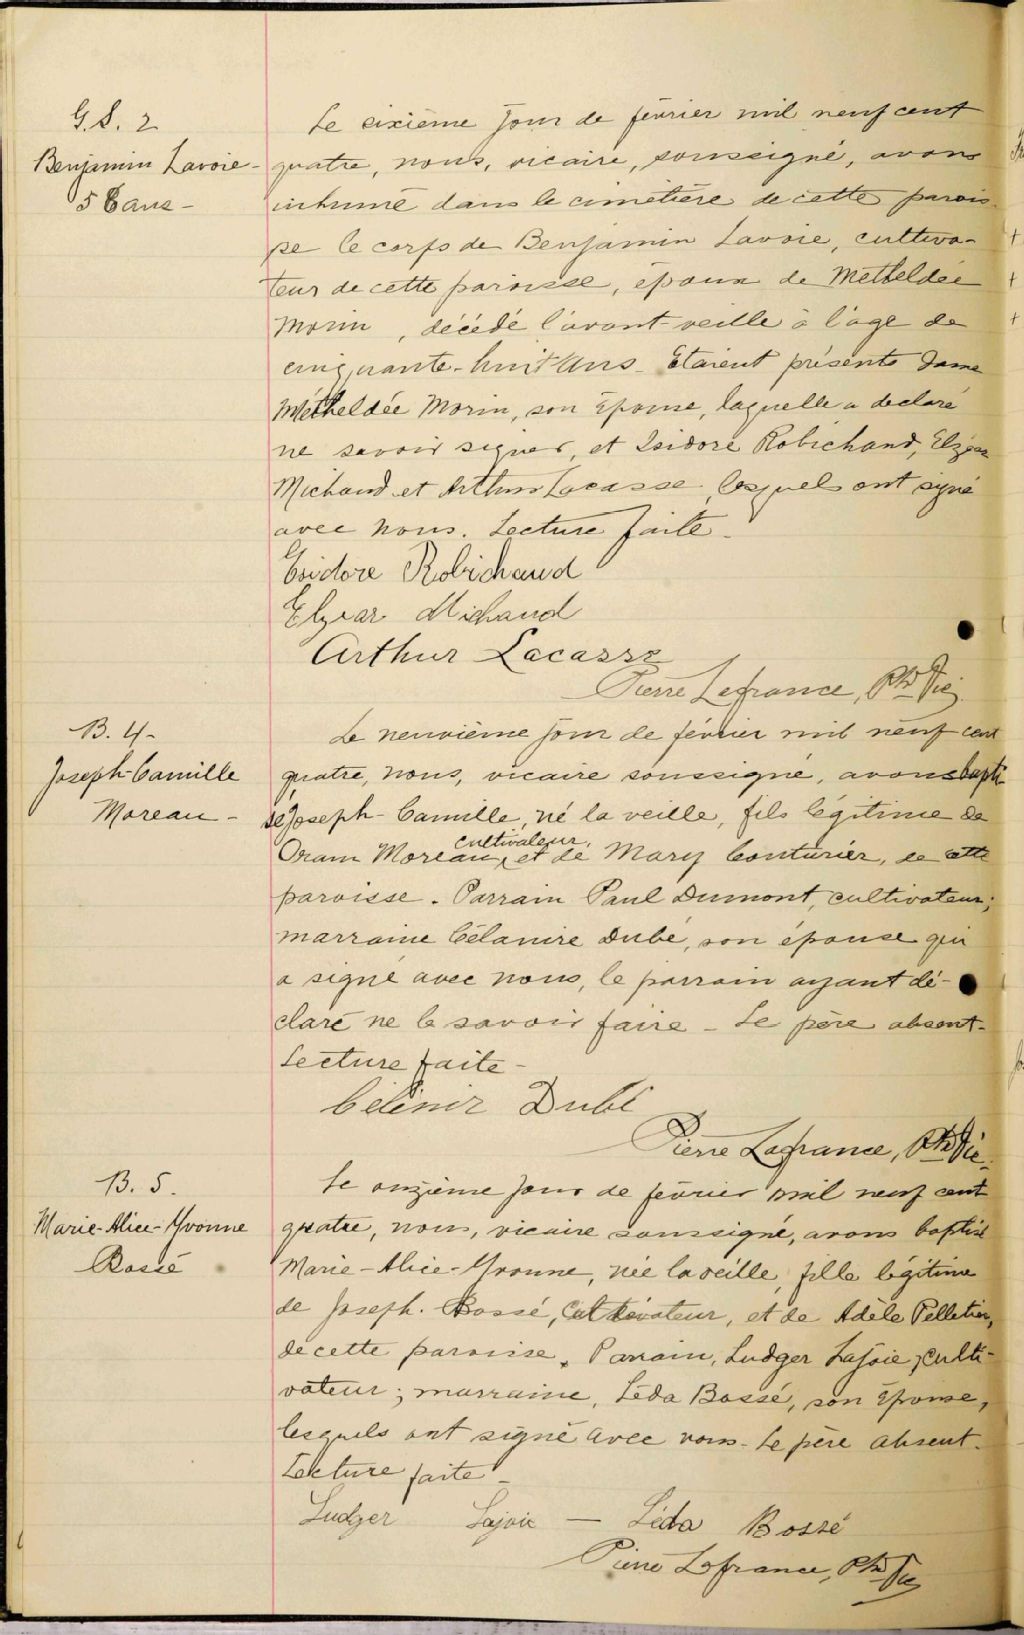 G.S. 2
Benjamin Lavoie -
58 ans -
Le sixième jour de février mil neuf cent
quatre, nous, vicaire, soussigné, avons
inhumé dans le cimetière de cette parois-
se le corps de Benjamin Lavoie, cultiva-
teur de cette paroisse, époux de Metheldée
Morin, décédé l'avant-veille à l'age de
cinquante-huit ans. Etaient présents Dame
Métheldée Morin, son épouse, laquelle a declaré
ne savoir signer, et Isidore Robichaud, Elzéar
Michaud et Arthur Lacasse lesquels ont signé
avec nous. Lecture faite.
Esidore Robichaud
Elzear Michaud
Arthur Lacasse
Pierre Lefrance, Ptre Vic.
B. 4-
Joseph-Camille
Moreau -
Le neuvième jour de février mil neuf cent
quatre, nous, vicaire soussigné, avons bapti
sé Joseph-Camille, né la veille, fils légitime de
cultivateur,
Oram Moreau, et de Mary Couturier, de cette
paroisse. Parrain Paul Dumont, cultivateur;
marraine Célanire Dubé, son épouse qui
a signé avec nous, le parrain ayant dé-
claré ne le savoir faire - Le père absent-
Lecture faite -
Célenir Dubé
Pierre Lafrance, Ptre Vic.
B. 5.
Marie-Alice-Yvonne
Bossé
Le onzième jour de février mil neuf cent
quatre, nous, vicaire soussigné, avons baptisé
Marie-Alice-Yvonne, née la veille, fille légitime
de Joseph. Bossé, cultivateur, et de Adèle Pelletier,
de cette paroisse. Parrain, Ludger Lajoie, culti-
vateur; marraine, Léda Bossé, son épouse,
lesquels ont signé avec nous. Le père absent.
Lecture faite -
Ludger Lajoie - Léda Bossé
Pierre Lafrance, Ptre Vic